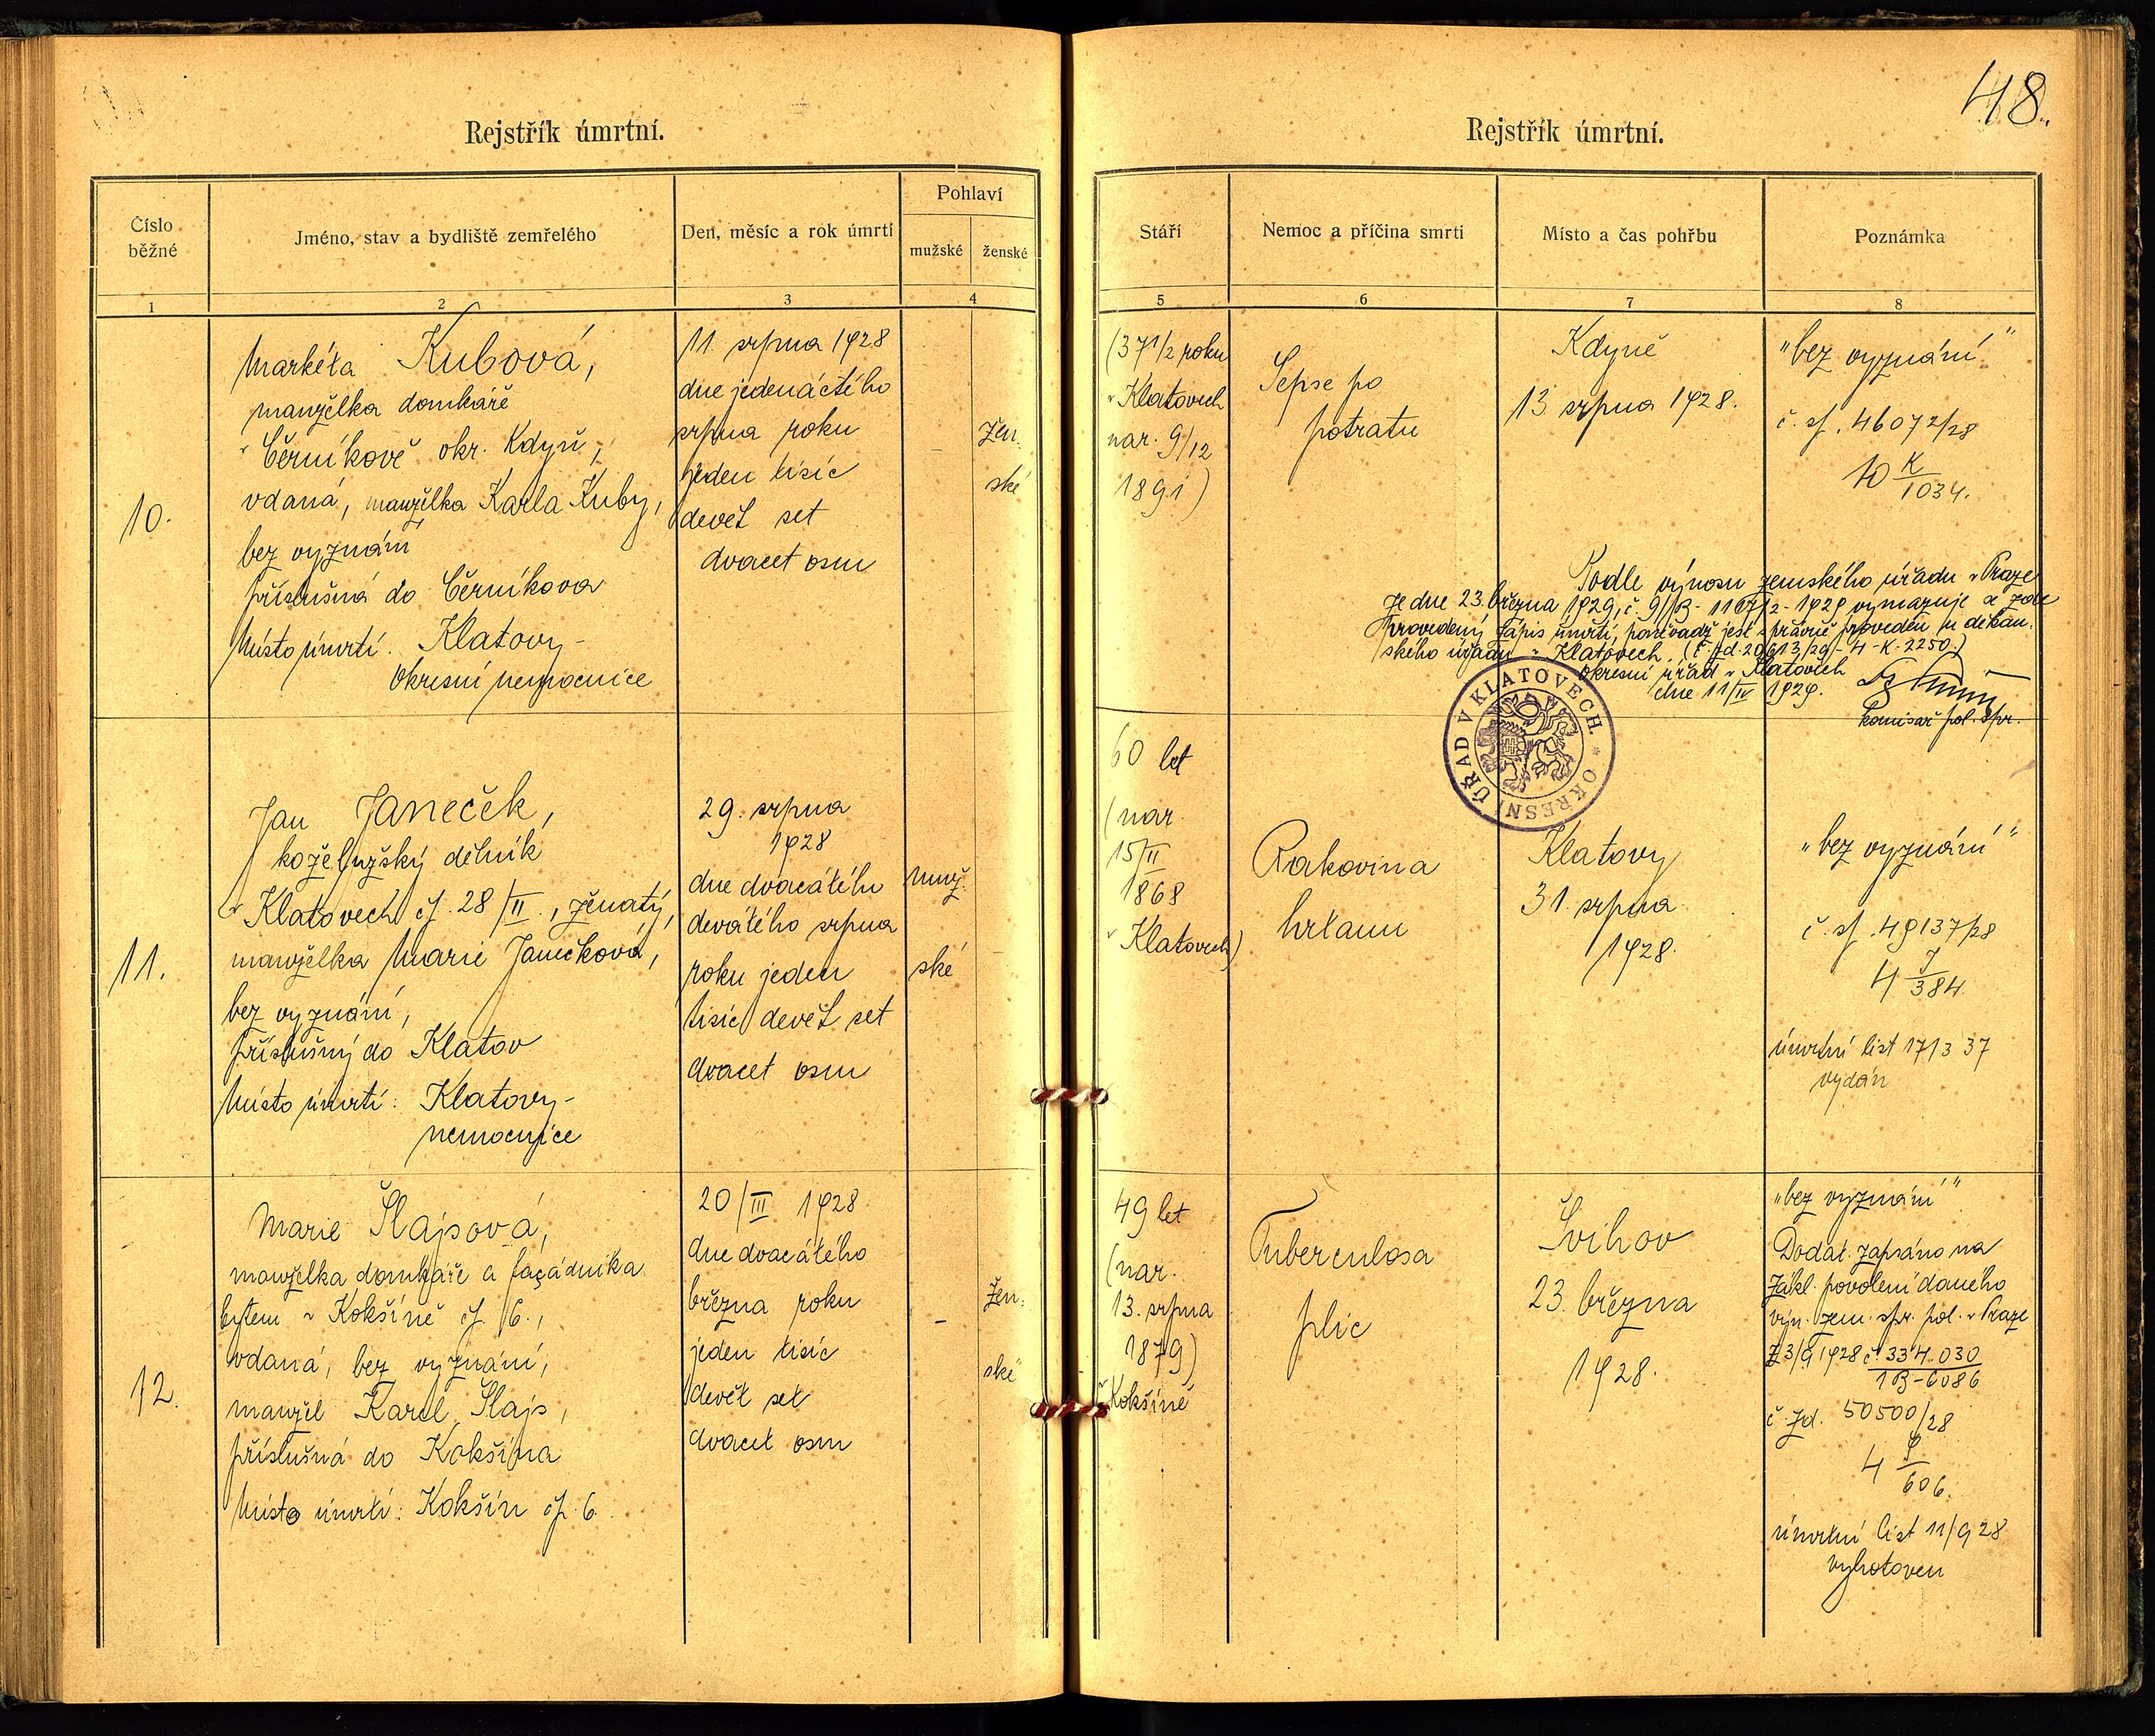 48.
Rejstřík úmrtní.
Číslo
běžné
Jméno, stav a bydliště zemřelého
Den, měsíc a rok úmrtí
Pohlaví
mužské
ženské
1
2
3
4
10.
Markéta Kubová,
manželka domkáře
v Černíkově okr. Kdyň,
vdaná, manželka Karla Kuby,
bez vyznání
příslušná do Černíkova
Místo úmrtí. Klatovy-
okresní nemocnice
11. srpna 1928
dne jedenáctého
srpna roku
jeden tisíc
devět set
dvacet osm
-
žen-
ské
11.
Jan Janeček,
koželužský dělník
v Klatovech čp. 28/II., ženatý,
manželka Marie Janečková,
bez vyznání,
příslušný do Klatov
Místo úmrtí: Klatovy-
nemocnice
29. srpna
1928
dne dvacátého
devátého srpna
roku jeden
tisíc devět set
dvacet osm
muž-
ské
-
12.
Marie Šlajsová,
manželka domkáře a façádníka
bytem v Kokšíně čp. 6.,
vdaná, bez vyznání,
manžel Karel Šlajs,
příslušná do Kokšína
Místo úmrtí: Kokšín čp. 6.
20/III 1928
dne dvacátého
března roku
jeden tisíc
devět set
dvacet osm
-
žen-
ské
Rejstřík úmrtní.
Stáří
Nemoc a příčina smrti
Místo a čas pohřbu
Poznámka
5
6
7
8
(37 1/2 roku
v Klatovech
nar. 9/12
1891)
Sepse po
potratu
Kdyně
13. srpna 1928.
"bez vyznání"
č. sp. 46072/28
10 K/1034.
Podle výnosu zemského úřadu v Praze
ze dne 23. března 1929, č. 9/B-1167/2-1929 vymazuje se zde
provedený zápis úmrtí, poněvadž jest správně proveden u děkan-
ského úřadu v Klatovech. (č. jd. 20613/29-4-K-2250.)
Okresní úřad v Klatovech
dne 11/IV 1929.
komisař pol. spr.
OKRESNÍ ÚŘAD V KLATOVECH.
60 let
(nar.
15/II
1868
v Klatovech)
Rakovina
hrtanu
Klatovy
31. srpna
1928.
"bez vyznání"
č. sp. 49137/28
4 J/384.
úmrtní list 17/3 37
vydán
49 let
(nar.
13. srpna
1879)
v Kokšíně
Tuberculosa
plic
Švihov
23. března
1928.
"bez vyznání"
Dodat. zapsáno na
zákl. povolení daného
výn. zem. spr. pol. v Praze
z 3/9 1928 č. 334.030
1B-6086
č jd. 50500/28
4 Š/606.
úmrtní list 11/9 28
vyhotoven